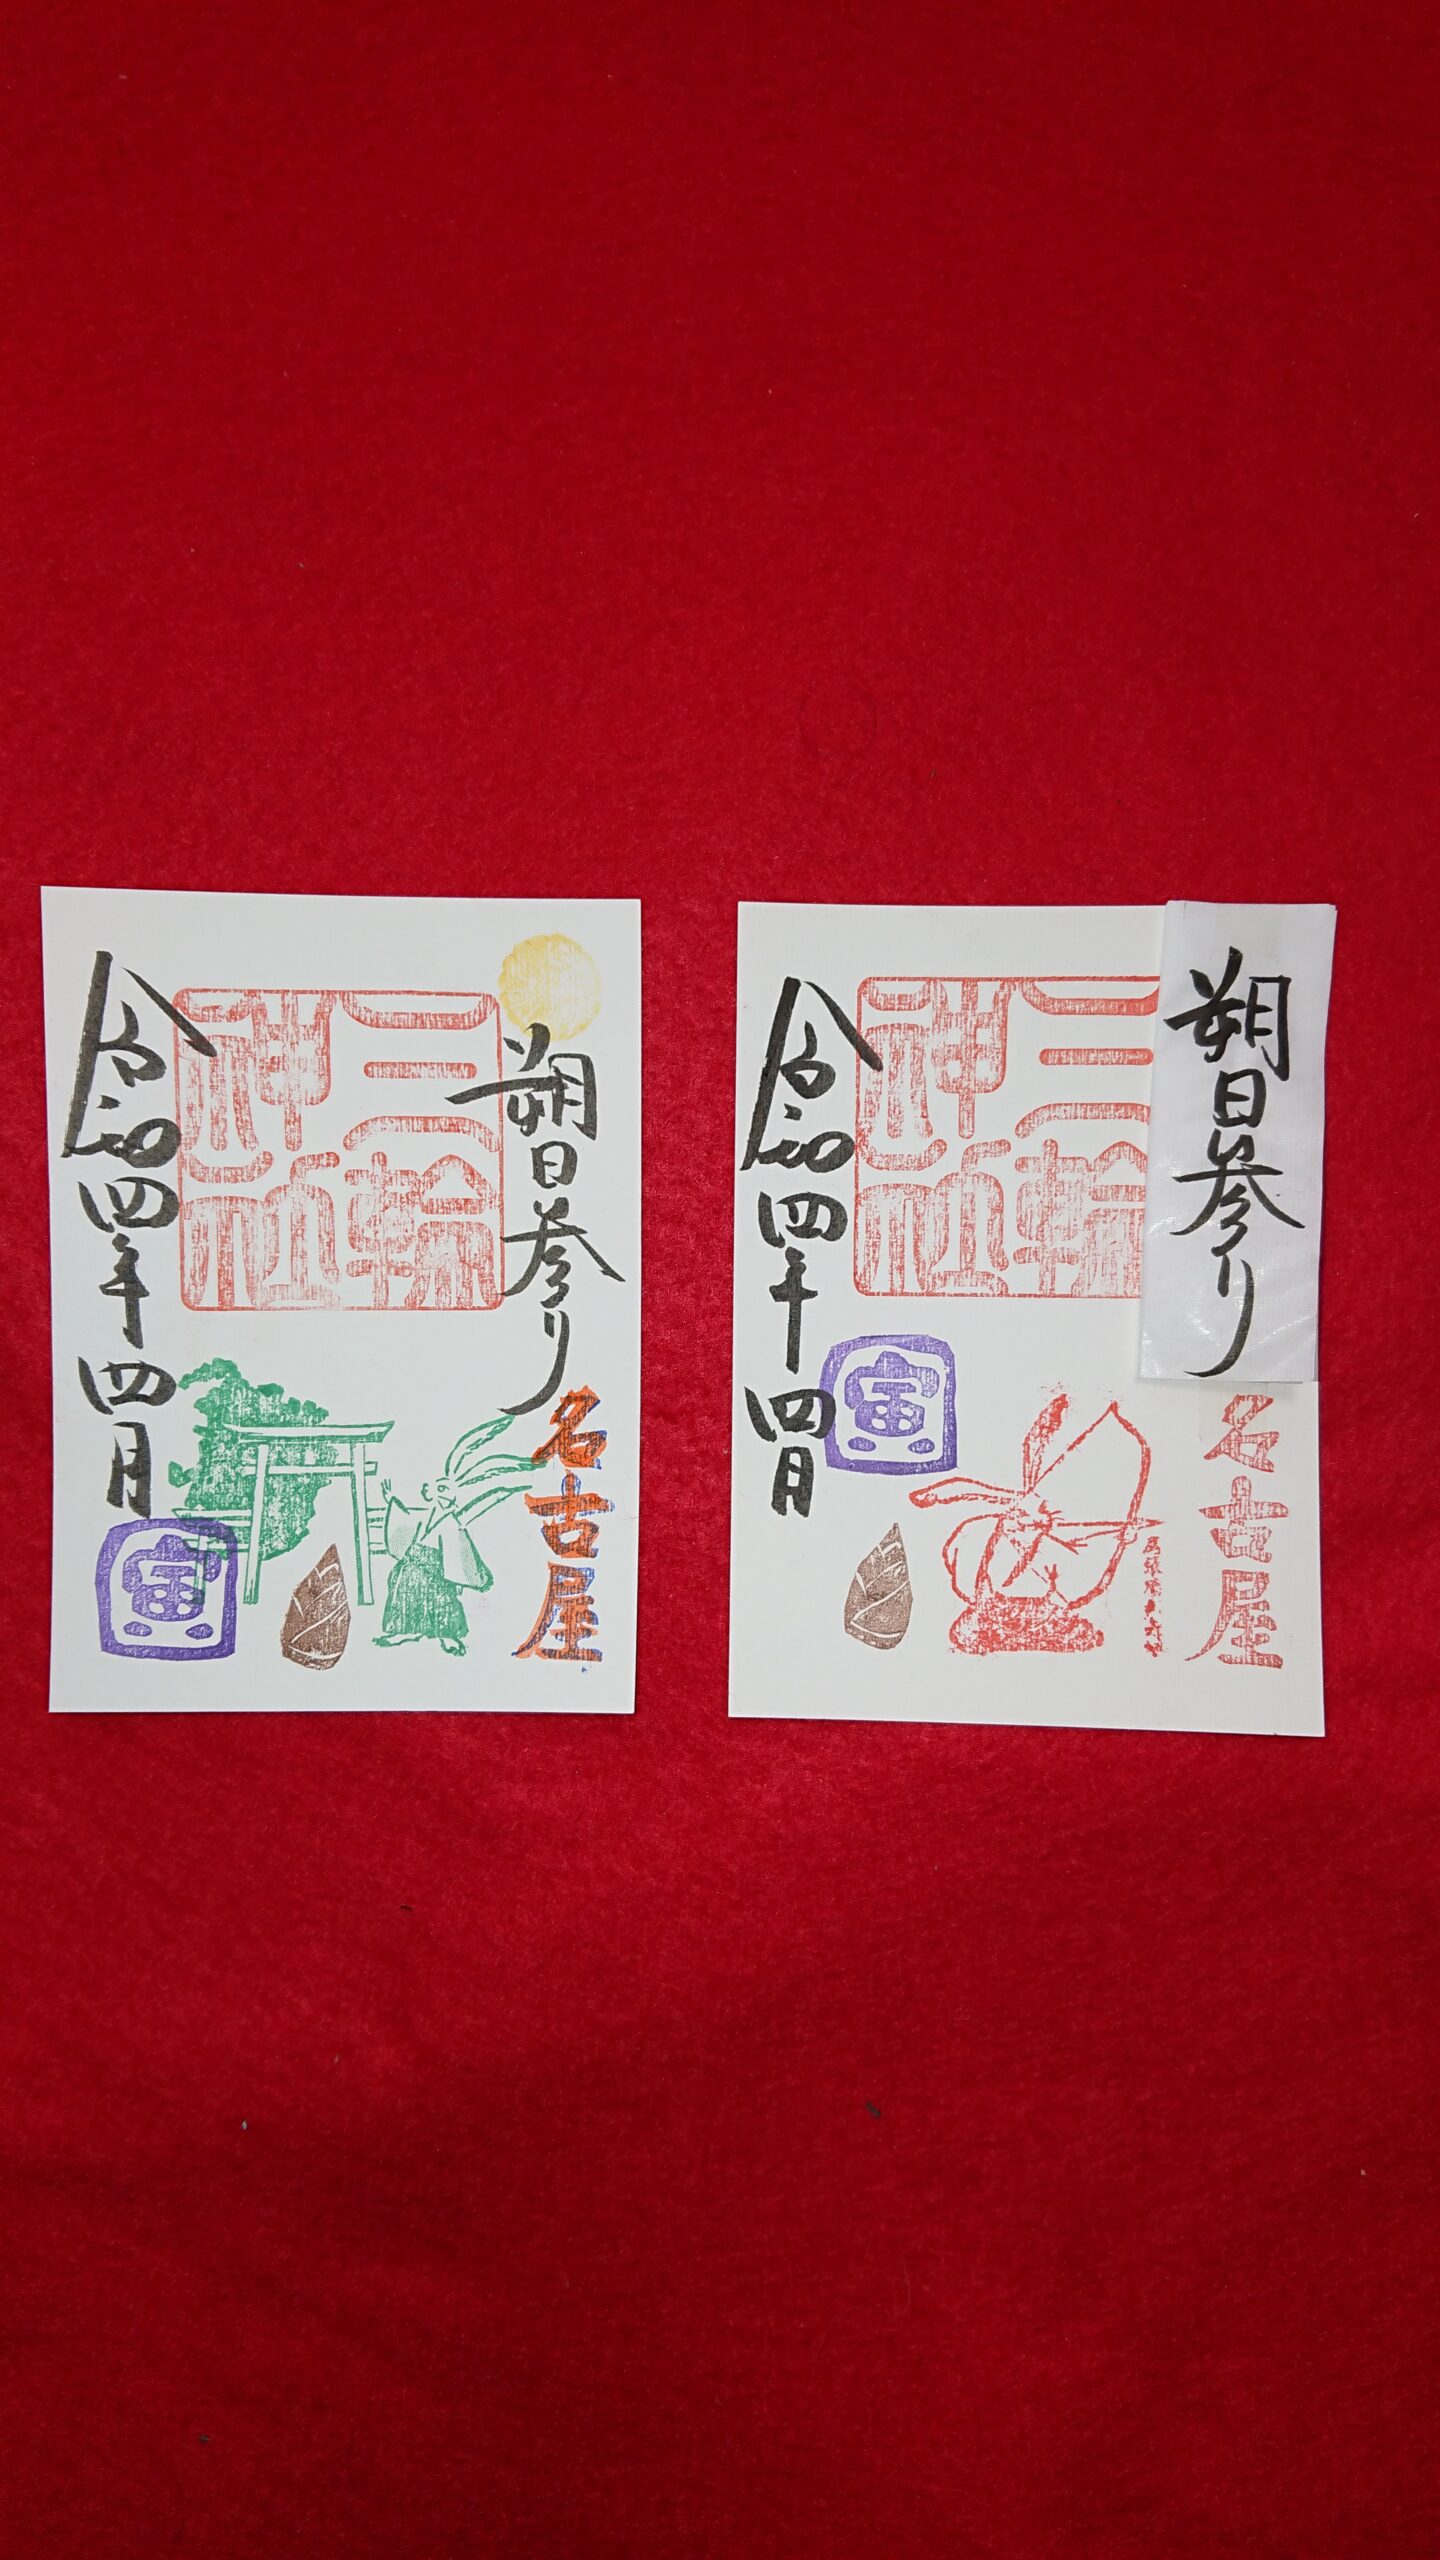 朔日参り
三輪
神社
名古屋
令和四年四月
寅
朔日参り
三輪
神社
名古屋
令和四年四月
寅